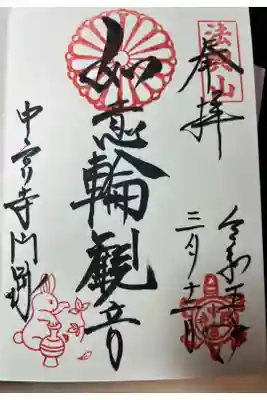 法興山
奉拝
令和五年
三月
如意輪觀音
中宮寺門跡